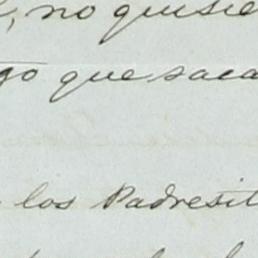 no quisie
go que saca
los Padresit